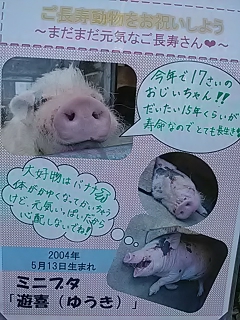 ご長寿動物をお祝いしよう
～まだまだ元気なご長寿さん❤～
今年で17さいの
おじいちゃん!!
だいたい15年くらいが
寿命なのでとても長生き
大好物はバナナ
体がかゆくなってかいちゃう
けど、元気いっぱいだから
心配しないでね!
2004年
5月13日生まれ
ミニブタ
「遊喜(ゆうき)」